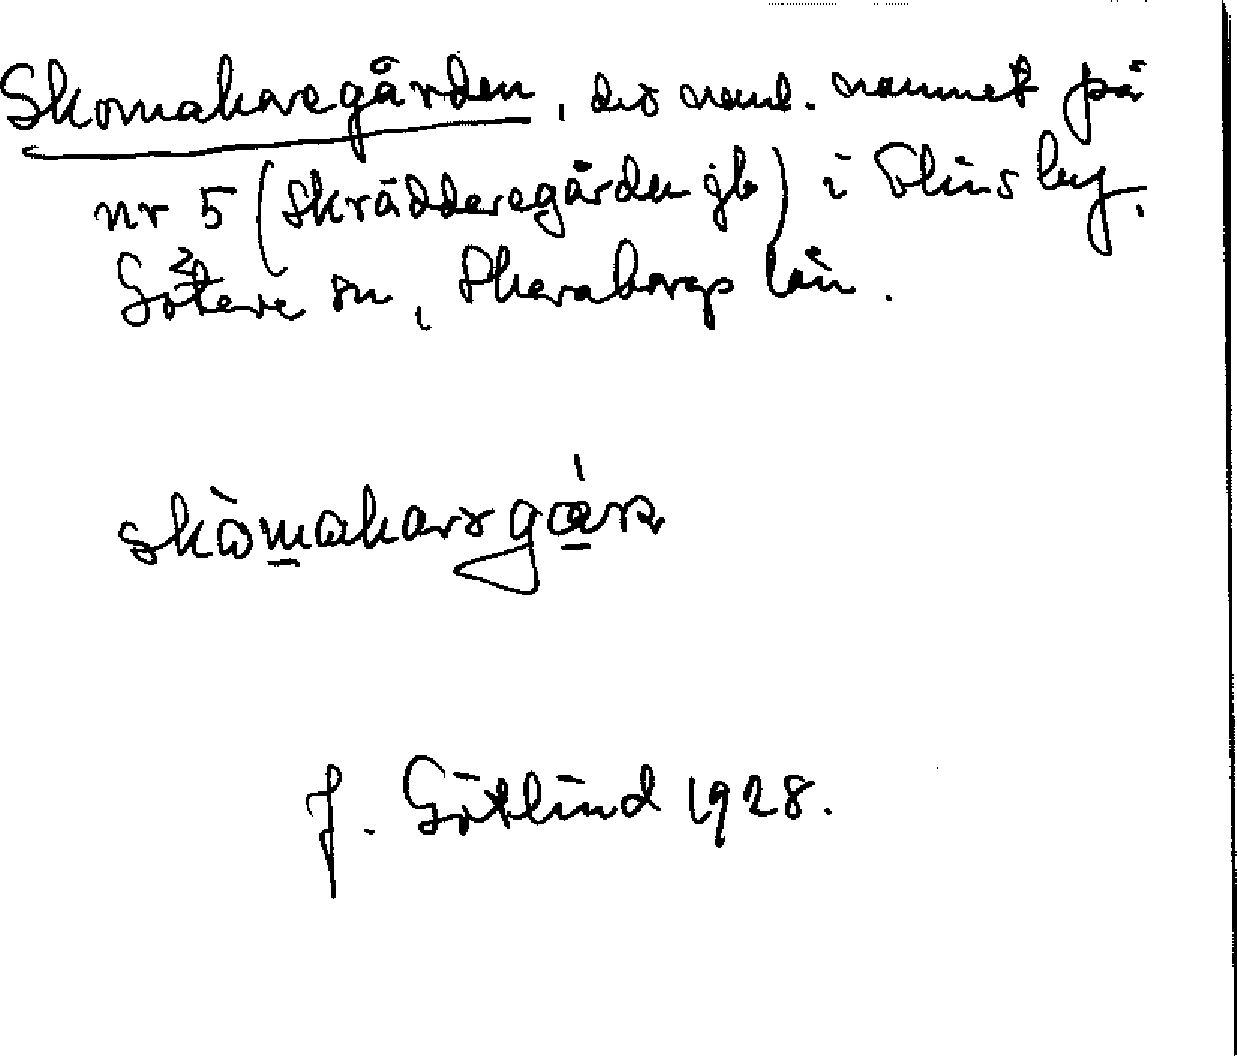 Skomakaregården, det vanl. namnet på
nr 5 (Skräddaregården jb) i Slins by,
Götere sn, Skaraborgs län.
skòmakarəgáṟn
J. Götlind 1928.